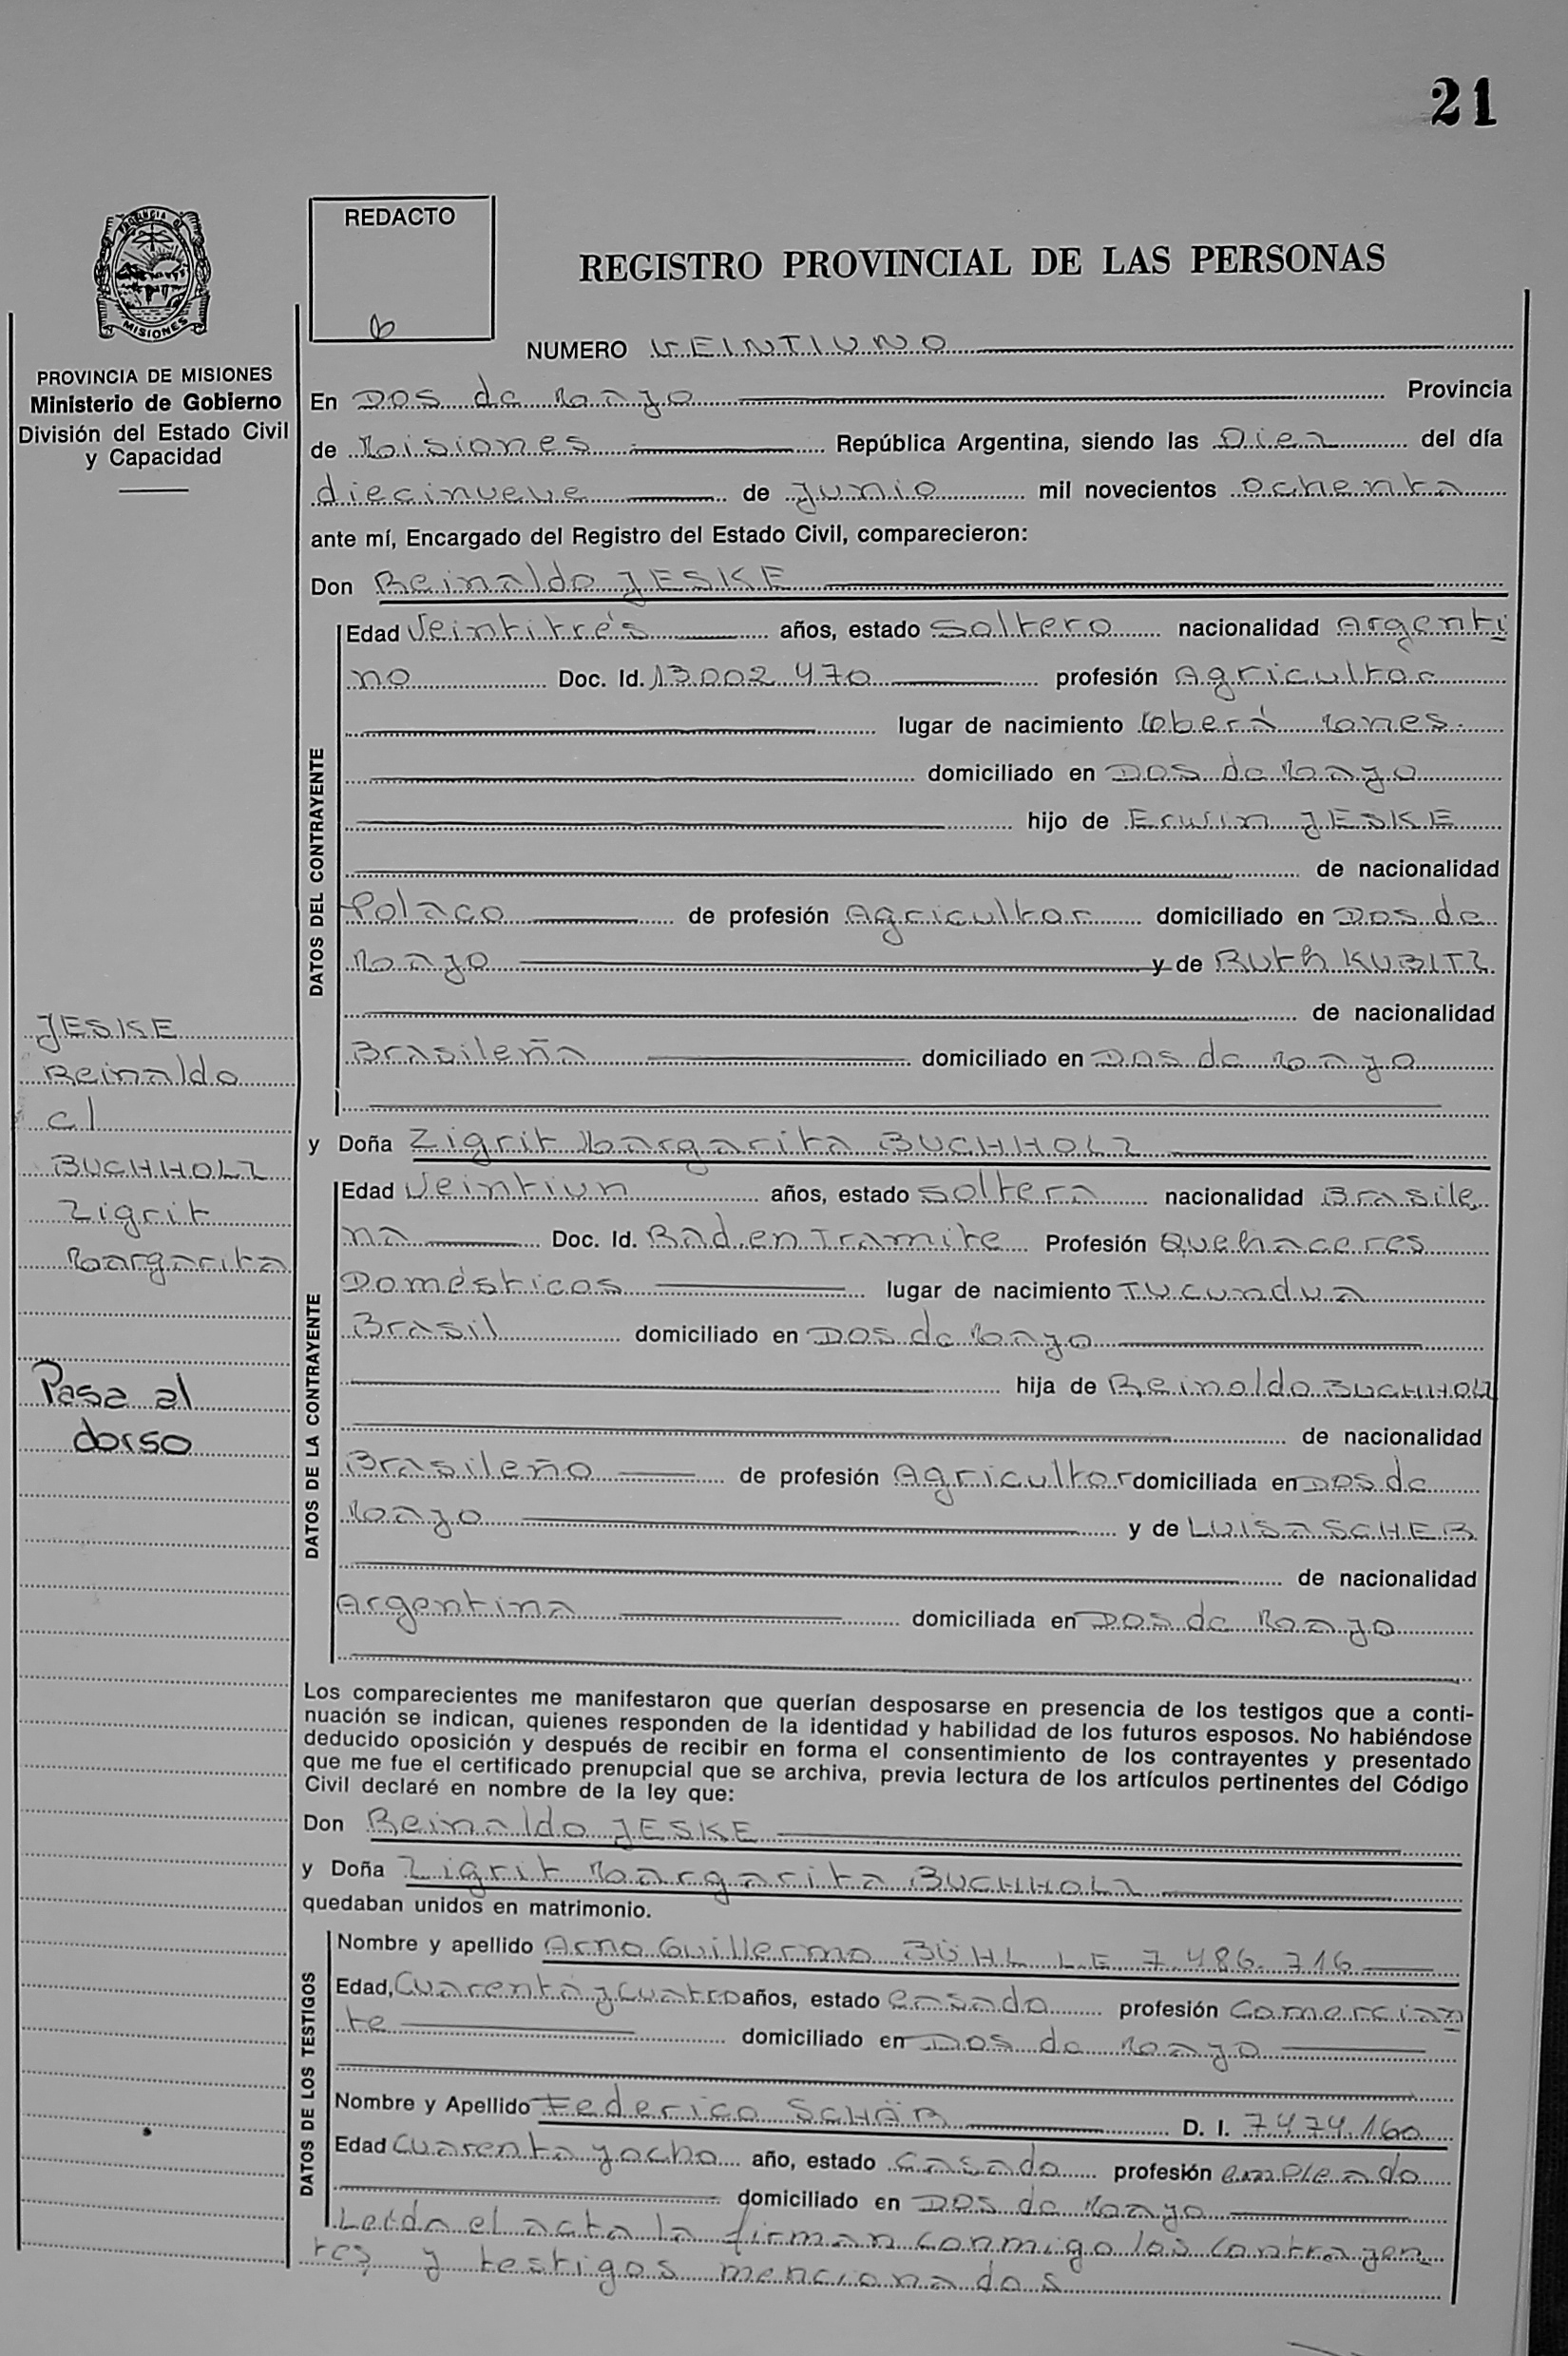 21
PROVINCIA DE
MISIONES
REDACTO
REGISTRO PROVINCIAL DE LAS PERSONAS
PROVINCIA DE MISIONES
Ministerio de Gobierno
División del Estado Civil
y Capacidad
NUMERO VEINTIUNO
En Dos de Mayo Provincia
de Misiones República Argentina, siendo las Diez del día
diecinueve de Junio mil novecientos Ochenta
ante mí, Encargado del Registro del Estado Civil, comparecieron:
Don Reinaldo JESKE
DATOS DEL CONTRAYENTE
Edad Veintitrés años, estado Soltero nacionalidad Argenti
no Doc. Id. 13.002.470 profesión Agricultor
lugar de nacimiento Oberá Mnes.
domiciliado en Dos de Mayo
hijo de Erwin JESKE
de nacionalidad
Polaco de profesión Agricultor domiciliado en Dos de
Mayo y de Ruth KUBITZ
de nacionalidad
Brasileña domiciliado en Dos de Mayo
JESKE
Reinaldo
c/
BUCHHOLZ
Zigrit
Margarita
Pasa al
dorso
y Doña Zigrit Margarita BUCHHOLZ
DATOS DE LA CONTRAYENTE
Edad Veintiun años, estado Soltera nacionalidad Brasile
na Doc. Id. Rad. en Tramite Profesión Quehaceres
Domésticos lugar de nacimiento Tucundua
Brasil domiciliado en Dos de Mayo
hija de Reinoldo BUCHHOLZ
de nacionalidad
Brasileño de profesión Agricultor domiciliada en Dos de
Mayo y de LUISA SCHER
de nacionalidad
Argentina domiciliada en Dos de Mayo
Los comparecientes me manifestaron que querían desposarse en presencia de los testigos que a conti-
nuación se indican, quienes responden de la identidad y habilidad de los futuros esposos. No habiéndose
deducido oposición y después de recibir en forma el consentimiento de los contrayentes y presentado
que me fue el certificado prenupcial que se archiva, previa lectura de los artículos pertinentes del Código
Civil declaré en nombre de la ley que:
Don Reinaldo JESKE
y Doña Zigrit Margarita BUCHHOLZ
quedaban unidos en matrimonio.
DATOS DE LOS TESTIGOS
Nombre y apellido Arno Guillermo BÜHL L E 7.486.716
Edad, Cuarenta y cuatro años, estado Casado profesión Comercian
te domiciliado en Dos de Mayo
Nombre y Apellido Federico SCHÄR D. I. 7.474.160
Edad Cuarenta y ocho año, estado Casado profesión empleado
domiciliado en Dos de Mayo
Leída el acta la firman conmigo los contrayen
tes y testigos mencionados